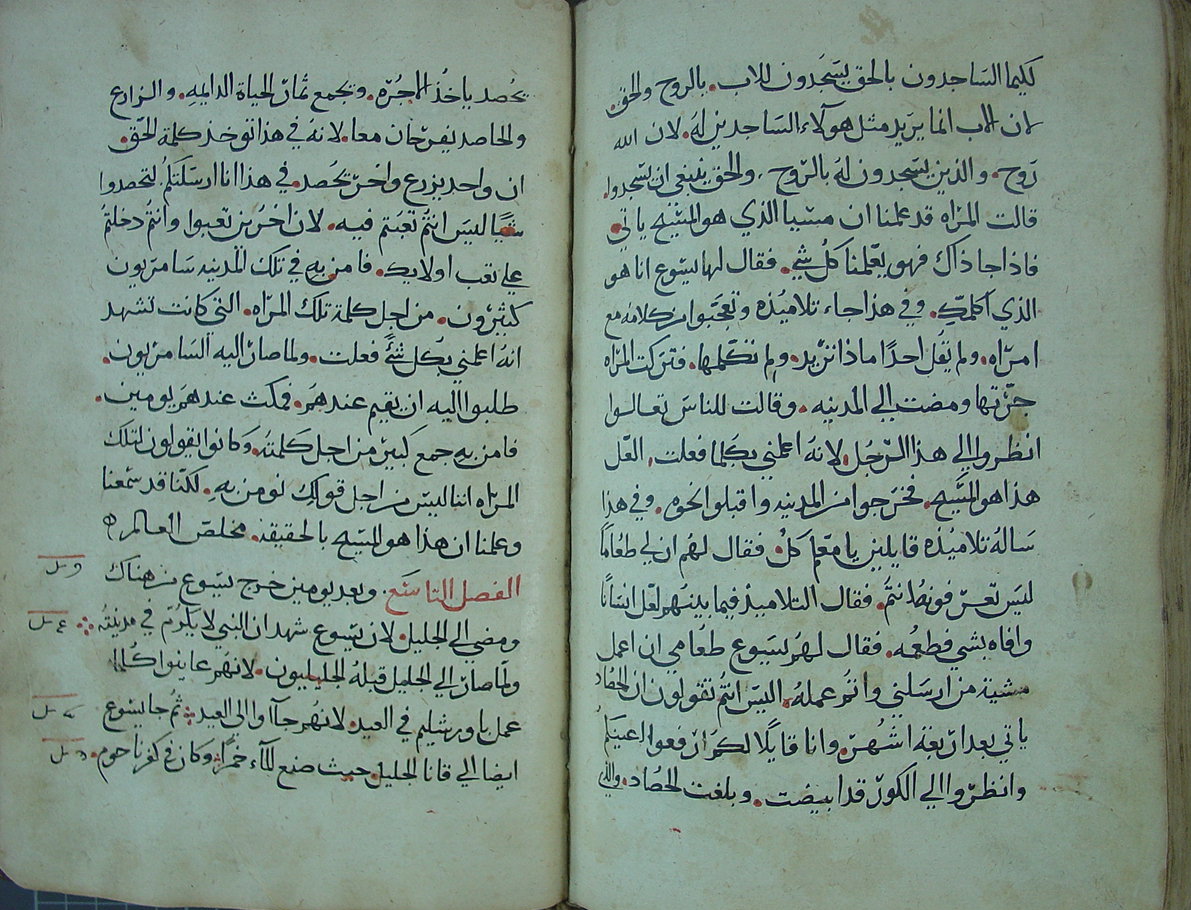 لكيما الساجدون بالحق يسجدون للاب. بالروح والحق.
لان الاب انما يريد مثل هولاء الساجدين له. لان الله
روح. والذين يسجدون له بالروح، والحق ينبغي ان يسجدوا.
قالت المراه قد علمنا ان مسيا الذي هو المسيح ياتي.
فاذا جا ذاك فهو يعلمنا كل شي. فقال لها يسوع انا هو
الذي اكلمك. وفي هذا جاء تلاميذه وتعجبوا من كلامه مع
امراه. ولم يقل احدًا ماذا تريد. ولم تكلمها. فتركت المراه
جرتها ومضت الي المدينه. وقالت للناس تعالوا
انظروا الي هذا الرجل لانه اعلمني بكلما فعلت. العل
هذا هو المسيح. فخرجوا من المدينه واقبلوا نحوه. وفي هذا
ساله تلاميذه قايلين يا معلم كل. فقال لهم ان لي طعامًا
ليس تعرفونه انتم. فقال التلاميذ فيما بينهم لعل انسانًا
وافاه بشي فطعمه. فقال لهم يسوع طعامي ان اعمل
مشية من ارسلني واتم عمله. اليس انتم تقولون ان الحصاد
ياتي بعد اربعة اشهر. وانا قايلًا لكم ارفعوا اعينكم
وانظروا الي الكور قد ابيضت. وبلغت الحصاد. والذي
يحصد ياخذ الاجره. ويجمع ثمار الحياة الدايمه. والزارع
والحاصد يفرحان معا. لانه في هذا توخذ كلمة الحق.
ان واحد يزرع واخر يحصد. في هذا انا ارسلتكم لتحصدوا
شيًا ليس انتم تعبتم فيه. لان اخرين تعبوا وانتم دخلتم
علي تعب اولايك. فامن به في تلك المدينه سامريون
كثيرون. من اجل كلمة تلك المراه. التي كانت تشهد
انه اعلمني بكل شئ فعلت. ولما صار اليه السامريون.
طلبوا اليه ان يقيم عندهم. فمكث عندهم يومين.
فامن به جمع كبير من اجل كلمته. وكانوا يقولون لتلك
المراه اننا ليس من اجل قولك نومن به. لكنا قد سمعنا
وعلمنا ان هذا هو المسيح بالحقيقه. مخلص العالم
الفصل التاسع. وبعد يومين خرج يسوع من هناك
ومضي الي الجليل. لان يسوع شهد ان النبي لا يكرم في مدينته
ولما صار الي الجليل قبله الجليليون. لانهم عاينوا كلما
عمل باورشليم في العيد. لانهم جآوا الي العيد. ثم جا يسوع
ايضا الي قانا الجليل. حيث صنع المآء خمرًا. وكان في كفرناحوم.